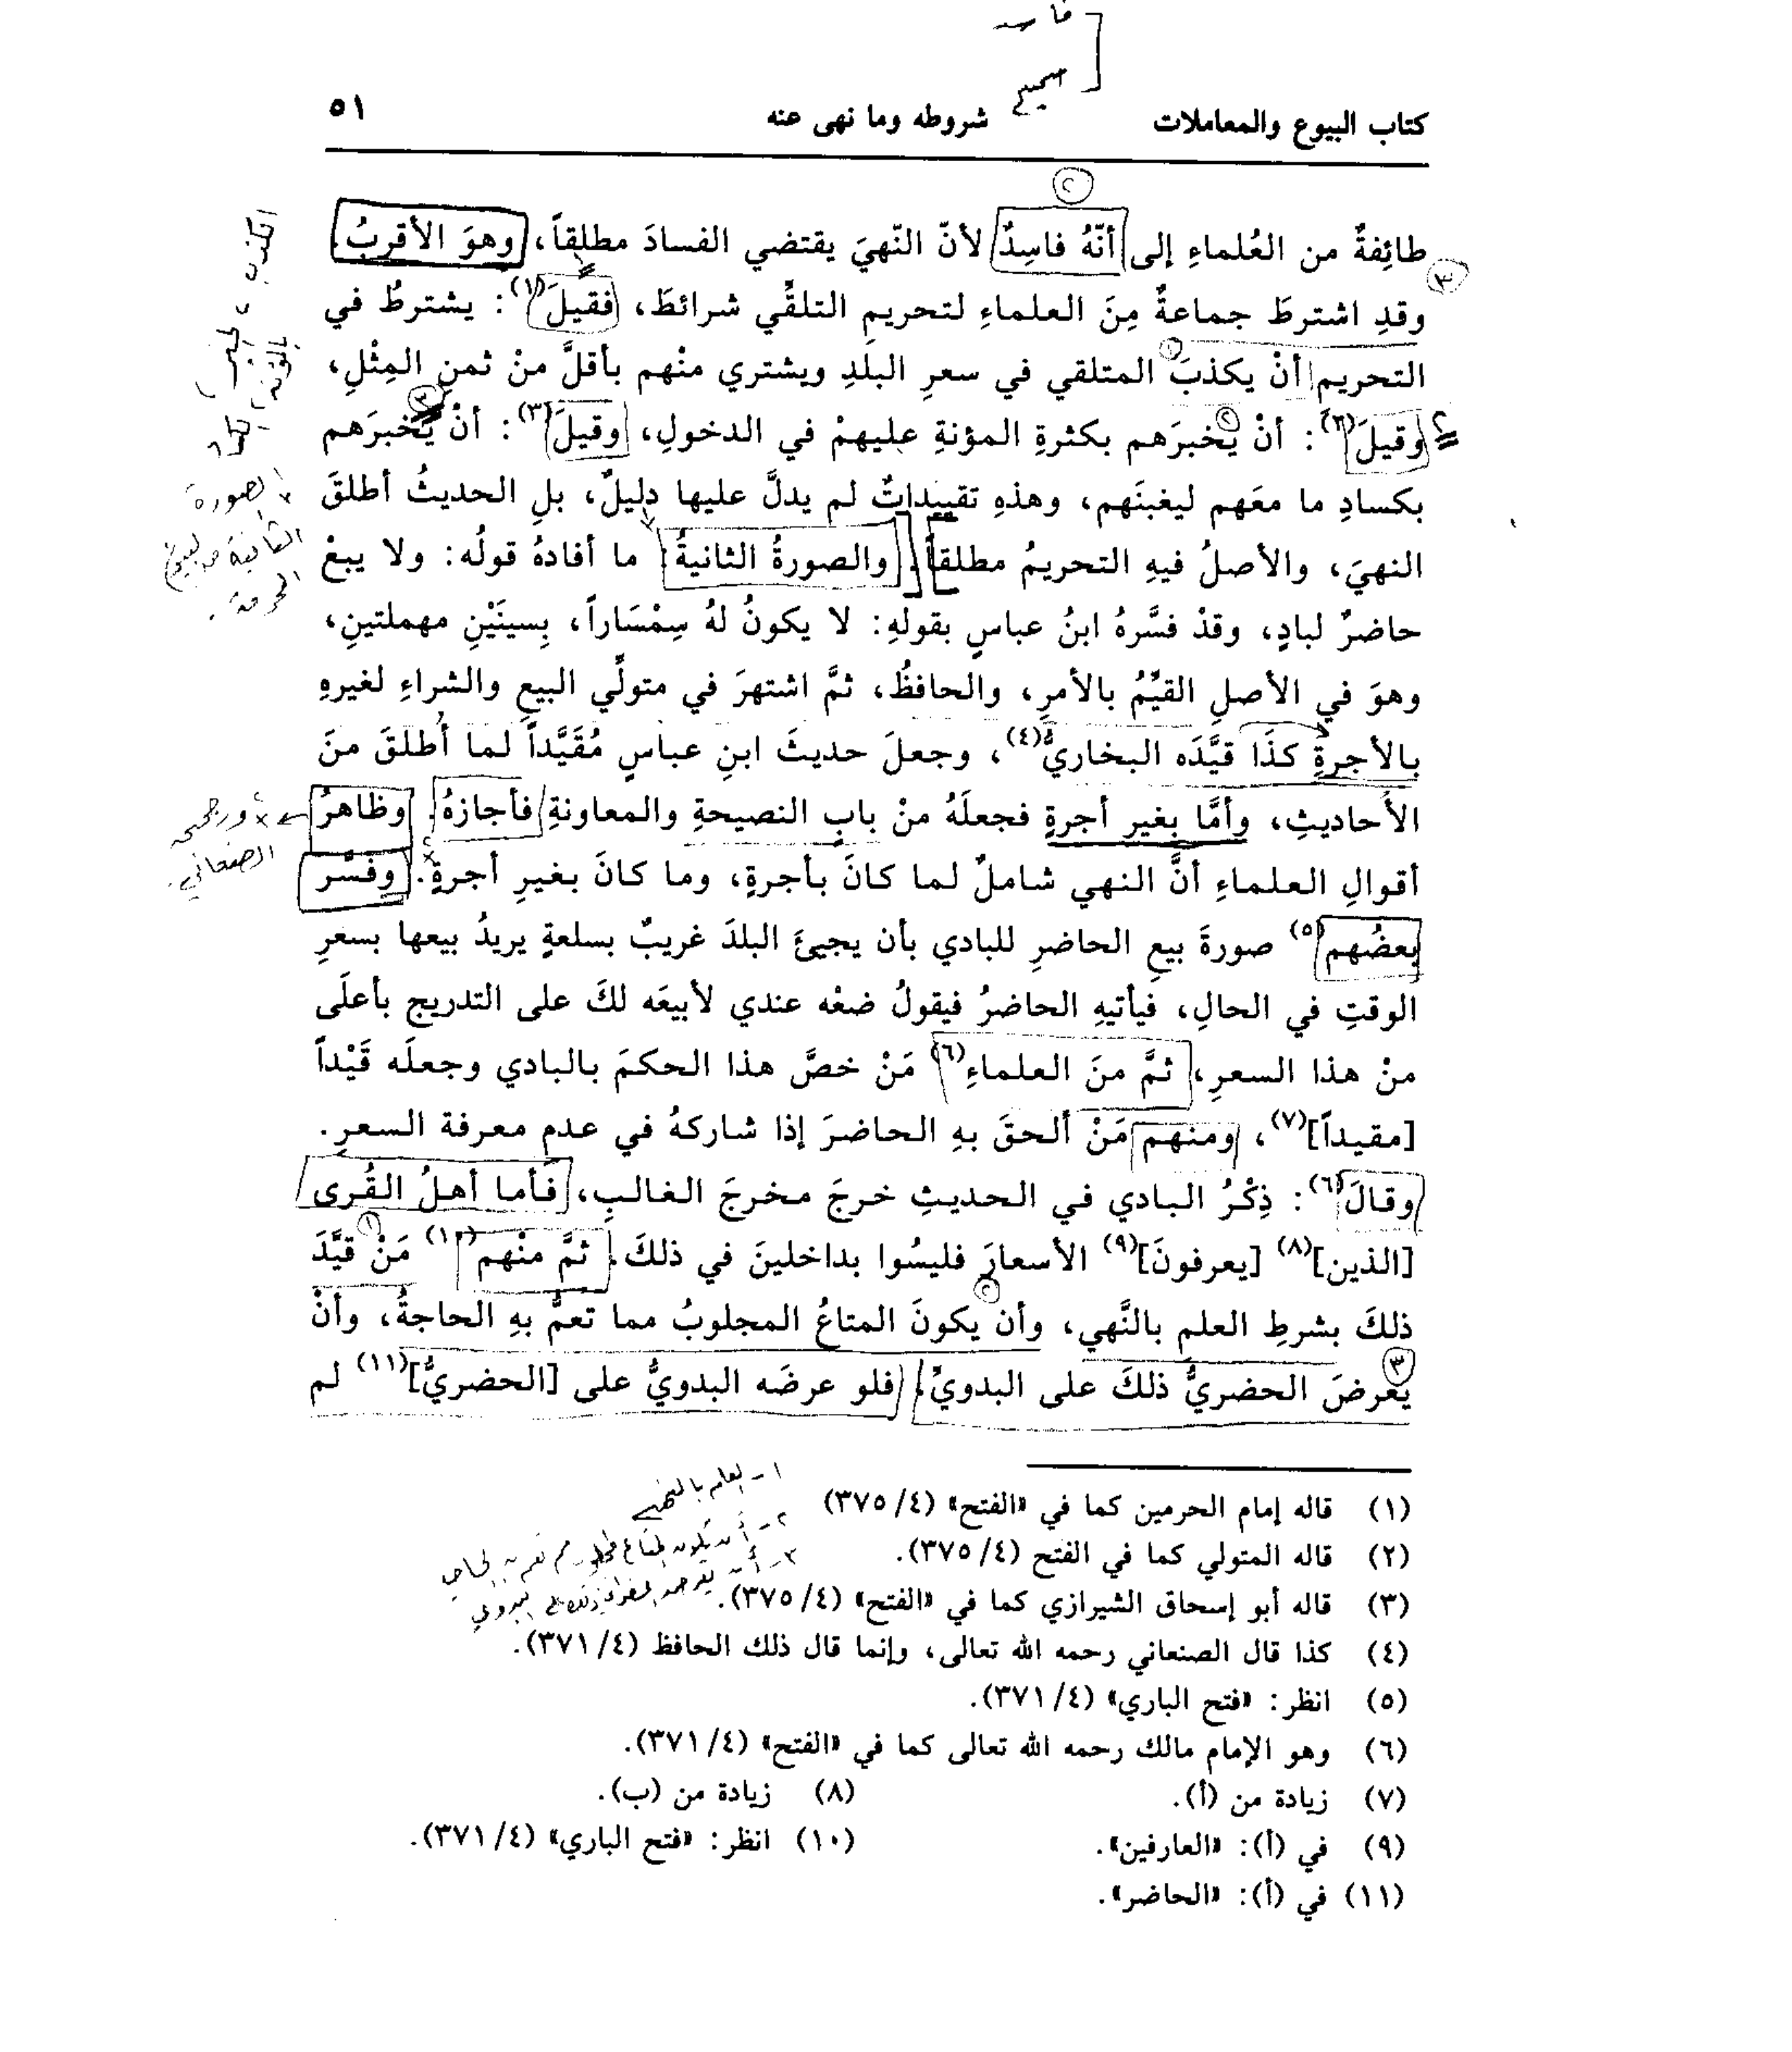 فاسد
صحيح
كتاب البيوع والمعاملات شروطه وما نهى عنه ٥١
طائِفةٌ من العُلماءِ إلى أنّهُ فاسِدٌ لأنّ النّهيَ يقتضي الفسادَ مطلقاً، وهوَ الأقربُ.
وقدِ اشترطَ جماعةٌ مِنَ العلماءِ لتحريمِ التلقِّي شرائطَ، فقيلَ(١): يشترطُ في
التحريم أنْ يكذبَ المتلقي في سعرِ البلَدِ ويشتري منْهم بأقلَّ منْ ثمنِ المِثْلِ،
وقيلَ(٢): أنْ يُخبرَهم بكثرةِ المؤنةِ عليهمْ في الدخولِ، وقيلَ(٣): أنْ يُخبرَهم
بكسادِ ما معَهم ليغبنَهم، وهذهِ تقييداتٌ لم يدلَّ عليها دليلٌ، بلِ الحديثُ أطلقَ
النهيَ، والأصلُ فيهِ التحريمُ مطلقاً. والصورةُ الثانيةُ: ما أفادهُ قولُه: ولا يبعْ
حاضرٌ لبادٍ، وقدْ فسَّرهُ ابنُ عباسٍ بقولهِ: لا يكونُ لهُ سِمْسَاراً، بِسينَيْنِ مهملتينِ،
وهوَ في الأصلِ القيِّمُ بالأمرِ، والحافظُ، ثمَّ اشتهرَ في متولِّي البيعِ والشراءِ لغيرهِ
بالأجرةِ كذَا قيَّدَه البخاريُّ(٤)، وجعلَ حديثَ ابنِ عباسٍ مُقَيَّداً لما أُطلقَ منَ
الأحاديثِ، وأمَّا بغيرِ أجرةٍ فجعلَهُ منْ بابِ النصيحةِ والمعاونةِ فأجازهُ. وظاهرُ
أقوالِ العلماءِ أنَّ النهي شاملٌ لما كانَ بأجرةٍ، وما كانَ بغيرِ أجرةٍ. وفسَّر
بعضُهم(٥) صورةَ بيعِ الحاضرِ للبادي بأن يجيئَ البلدَ غريبٌ بسلعةٍ يريدُ بيعها بسعرِ
الوقتِ في الحالِ، فيأتيهِ الحاضرُ فيقولُ ضعْه عندي لأبيعَه لكَ على التدريجِ بأعلَى
منْ هذا السعرِ، ثمَّ منَ العلماءِ(٦) مَنْ خصَّ هذا الحكمَ بالبادي وجعلَه قَيْداً
[مقيداً](٧)، ومنهم مَنْ ألحقَ بهِ الحاضرَ إذا شاركهُ في عدم معرفة السعرِ.
وقالَ(٦): ذِكْرُ البادي في الحديثِ خرجَ مخرجَ الغالبِ، فأما أهلُ القُرى
[الذين](٨) [يعرفونَ](٩) الأسعارَ فليسُوا بداخلينَ في ذلكَ. ثمَّ منْهم(١٠) مَنْ قيَّدَ
ذلكَ بشرطِ العلمِ بالنَّهي، وأن يكونَ المتاعُ المجلوبُ مما تعمُّ بهِ الحاجةُ، وأنْ
يَعرضَ الحضريُّ ذلكَ على البدويِّ، فلو عرضَه البدويُّ على [الحضريُّ](١١) لم
الصورة
الثانية من البيوع
المحرمة.
ورجحه
الصنعاني.
١ - العلم بالنهي
٢ - أن يكون المتاع المجلوب مما تعم به الحاجة
٣ - أن يعرض الحضري ذلك على البدوي
(١) قاله إمام الحرمين كما في «الفتح» (٤/ ٣٧٥)
(٢) قاله المتولي كما في الفتح (٤/ ٣٧٥).
(٣) قاله أبو إسحاق الشيرازي كما في «الفتح» (٤/ ٣٧٥).
(٤) كذا قال الصنعاني رحمه الله تعالى، وإنما قال ذلك الحافظ (٤/ ٣٧١).
(٥) انظر: «فتح الباري» (٤/ ٣٧١).
(٦) وهو الإمام مالك رحمه الله تعالى كما في «الفتح» (٤/ ٣٧١).
(٧) زيادة من (أ). (٨) زيادة من (ب).
(٩) في (أ): «العارفين». (١٠) انظر: «فتح الباري» (٤/ ٣٧١).
(١١) في (أ): «الحاضر».